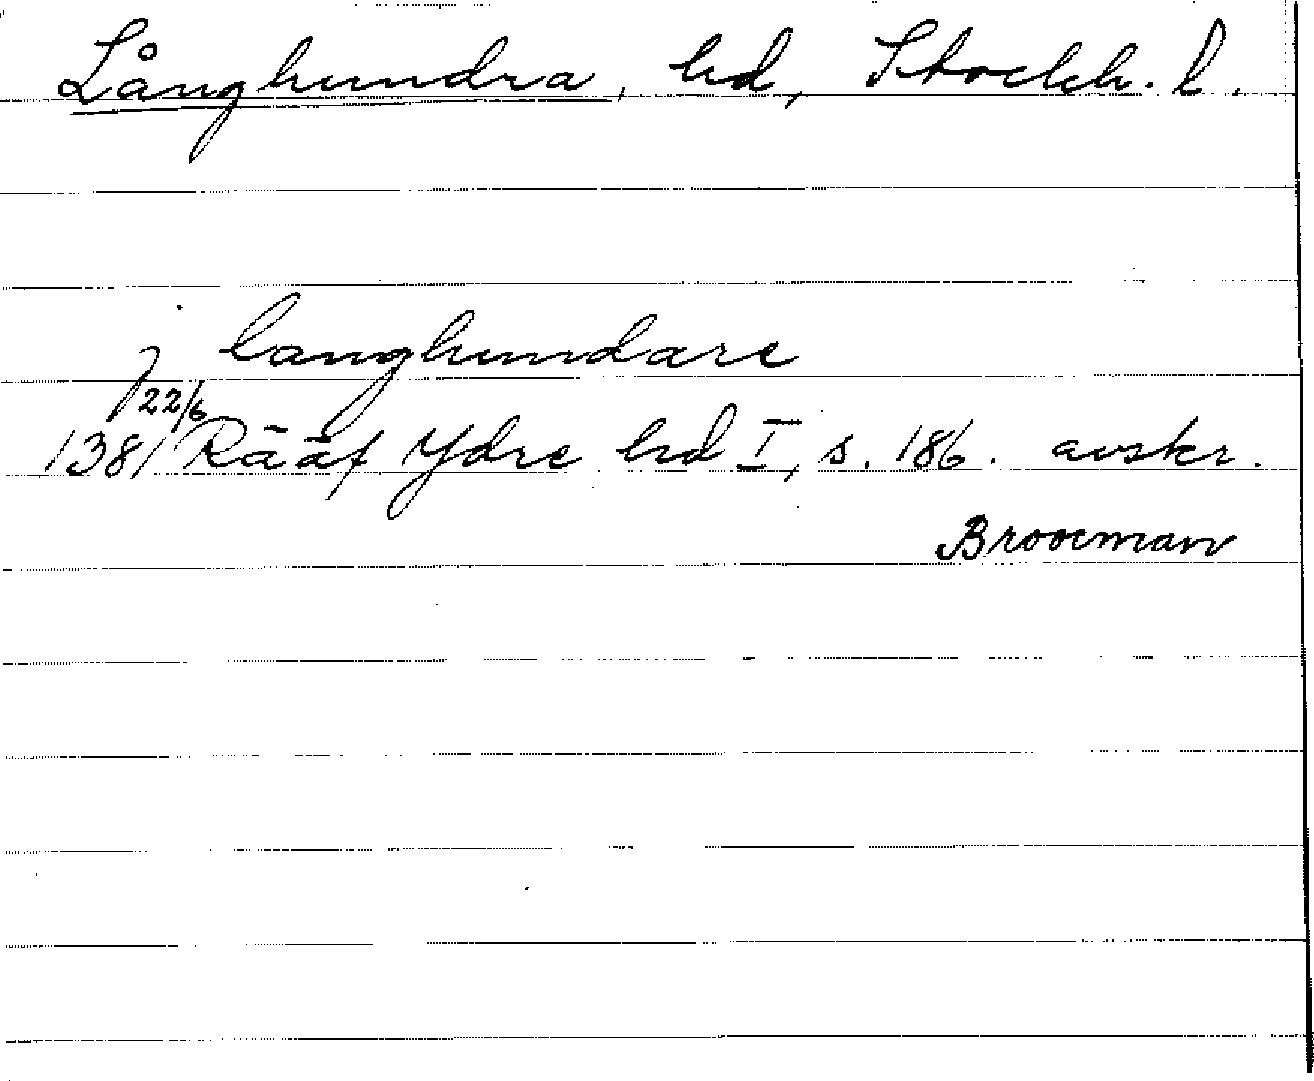 Långhundra, hd, Stockh. l.
j langhundare
22/6
1381 Rääf Ydre hd I, s. 186. avskr.
Brocman